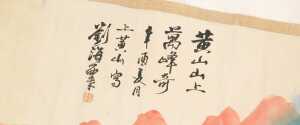 黄山山上
萬峰奇
辛酉夏月
上黄山寫
劉海粟